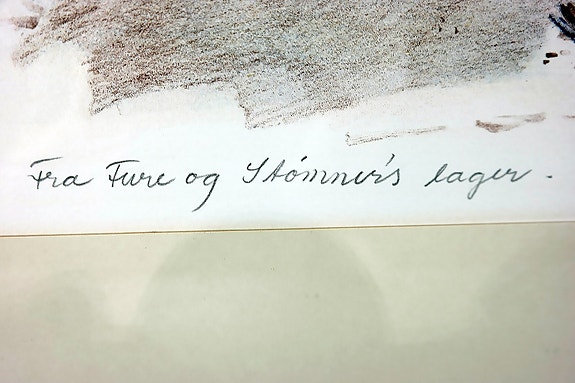 Fra Fure og Stómner's lager.